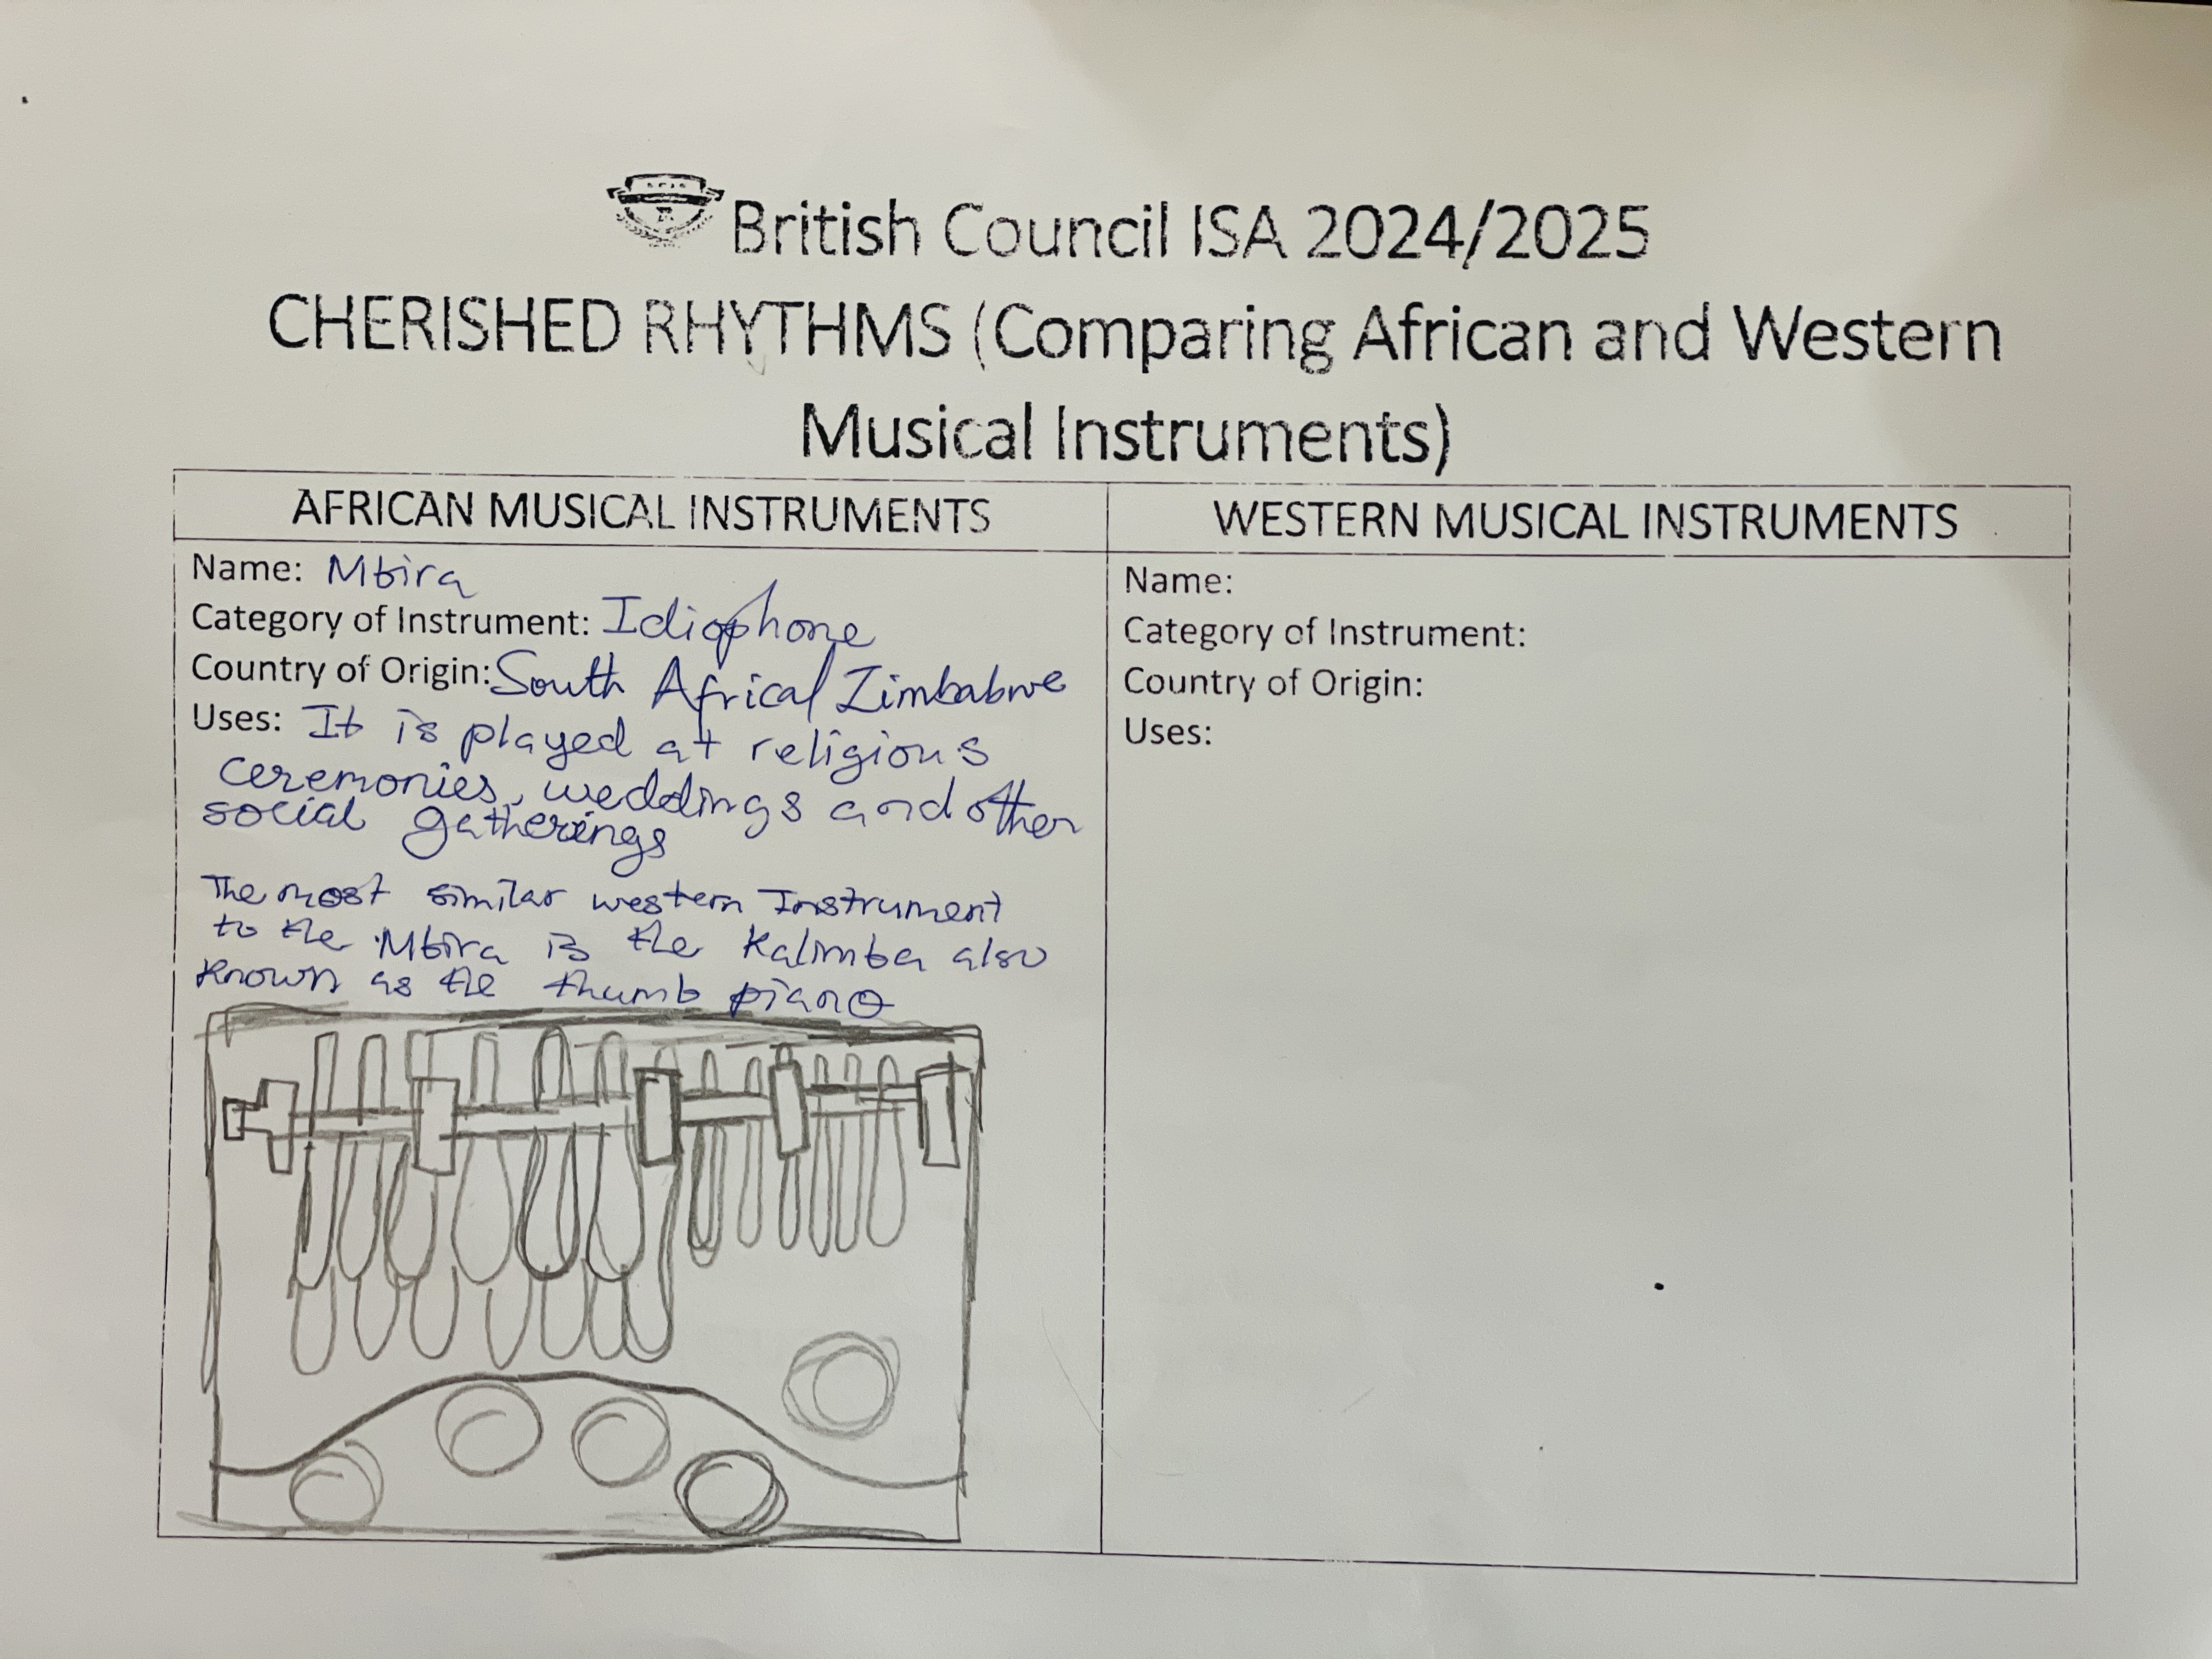 British Council ISA 2024/2025
CHERISHED RHYTHMS (Comparing African and Western
Musical Instruments)
AFRICAN MUSICAL INSTRUMENTS
Name: Mbira
Category of Instrument: Idiophone
Country of Origin: South Africa/ Zimbabwe
Uses: It is played at religious
ceremonies, weddings and other
social gatherings
The most similar western Instrument
to the Mbira is the Kalimba also
known as the thumb piano
WESTERN MUSICAL INSTRUMENTS
Name:
Category of Instrument:
Country of Origin:
Uses: